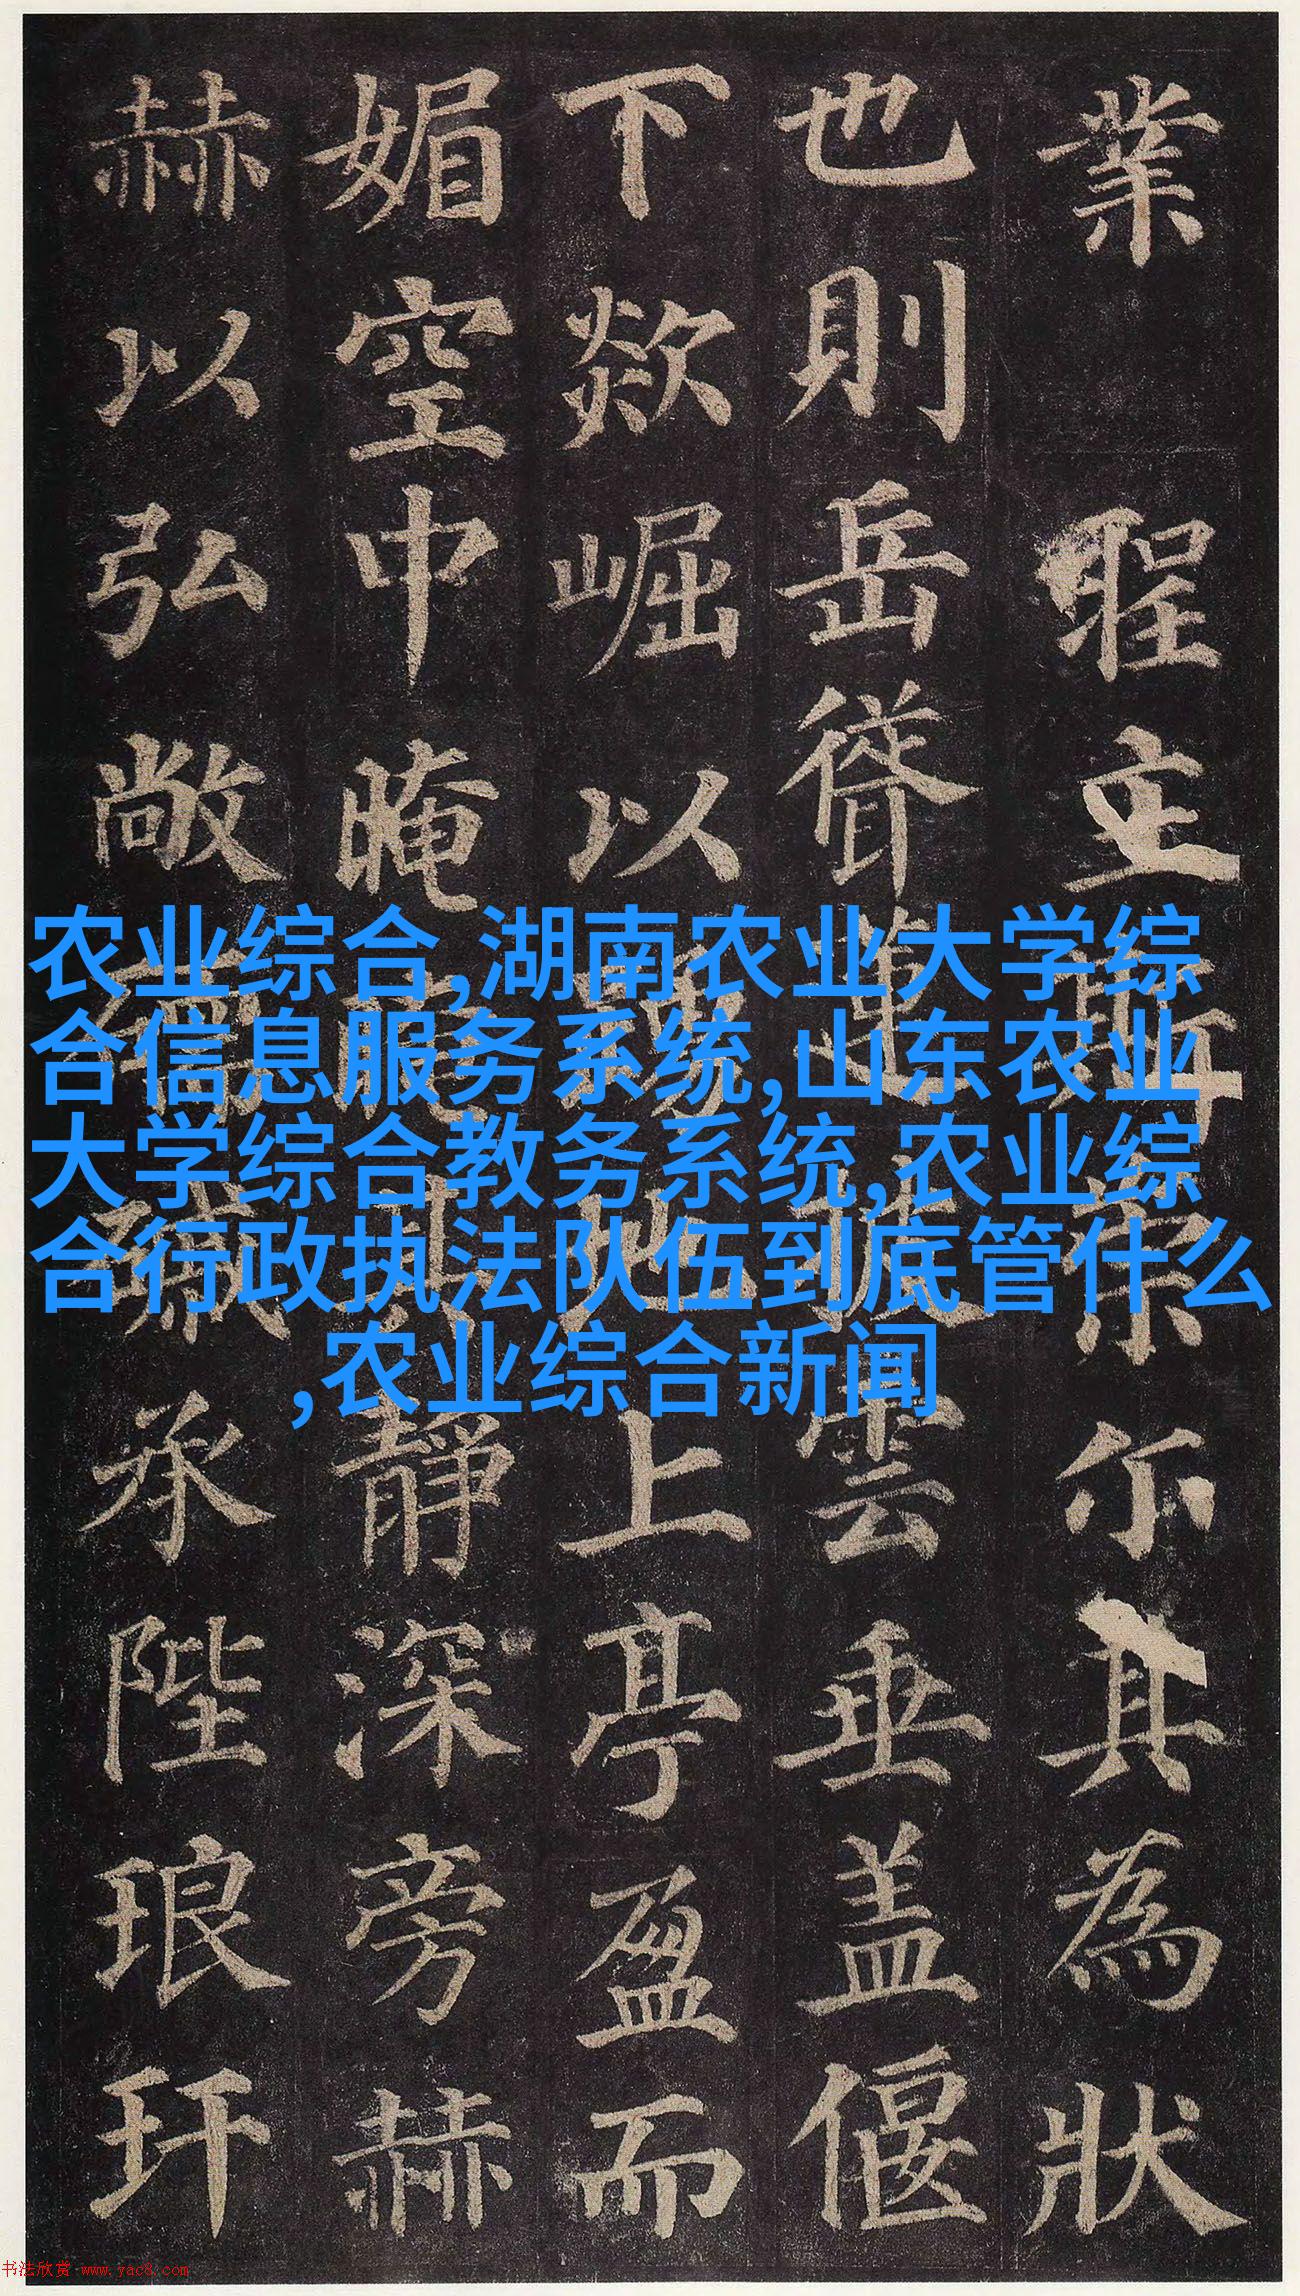 業聖主斯崇尒其為狀
也則岳聳蓮披雲垂盖偃
下欻崛以踊地上亭盈而
媚空中晻晻其靜深旁赫
赫以弘敞承陛琅玕
农业综合,湖南农业大学综
合信息服务系统,山东农业
大学综合教务系统,农业综
合行政执法队伍到底管什么
,农业综合新闻
书法欣赏 www.yac8.com